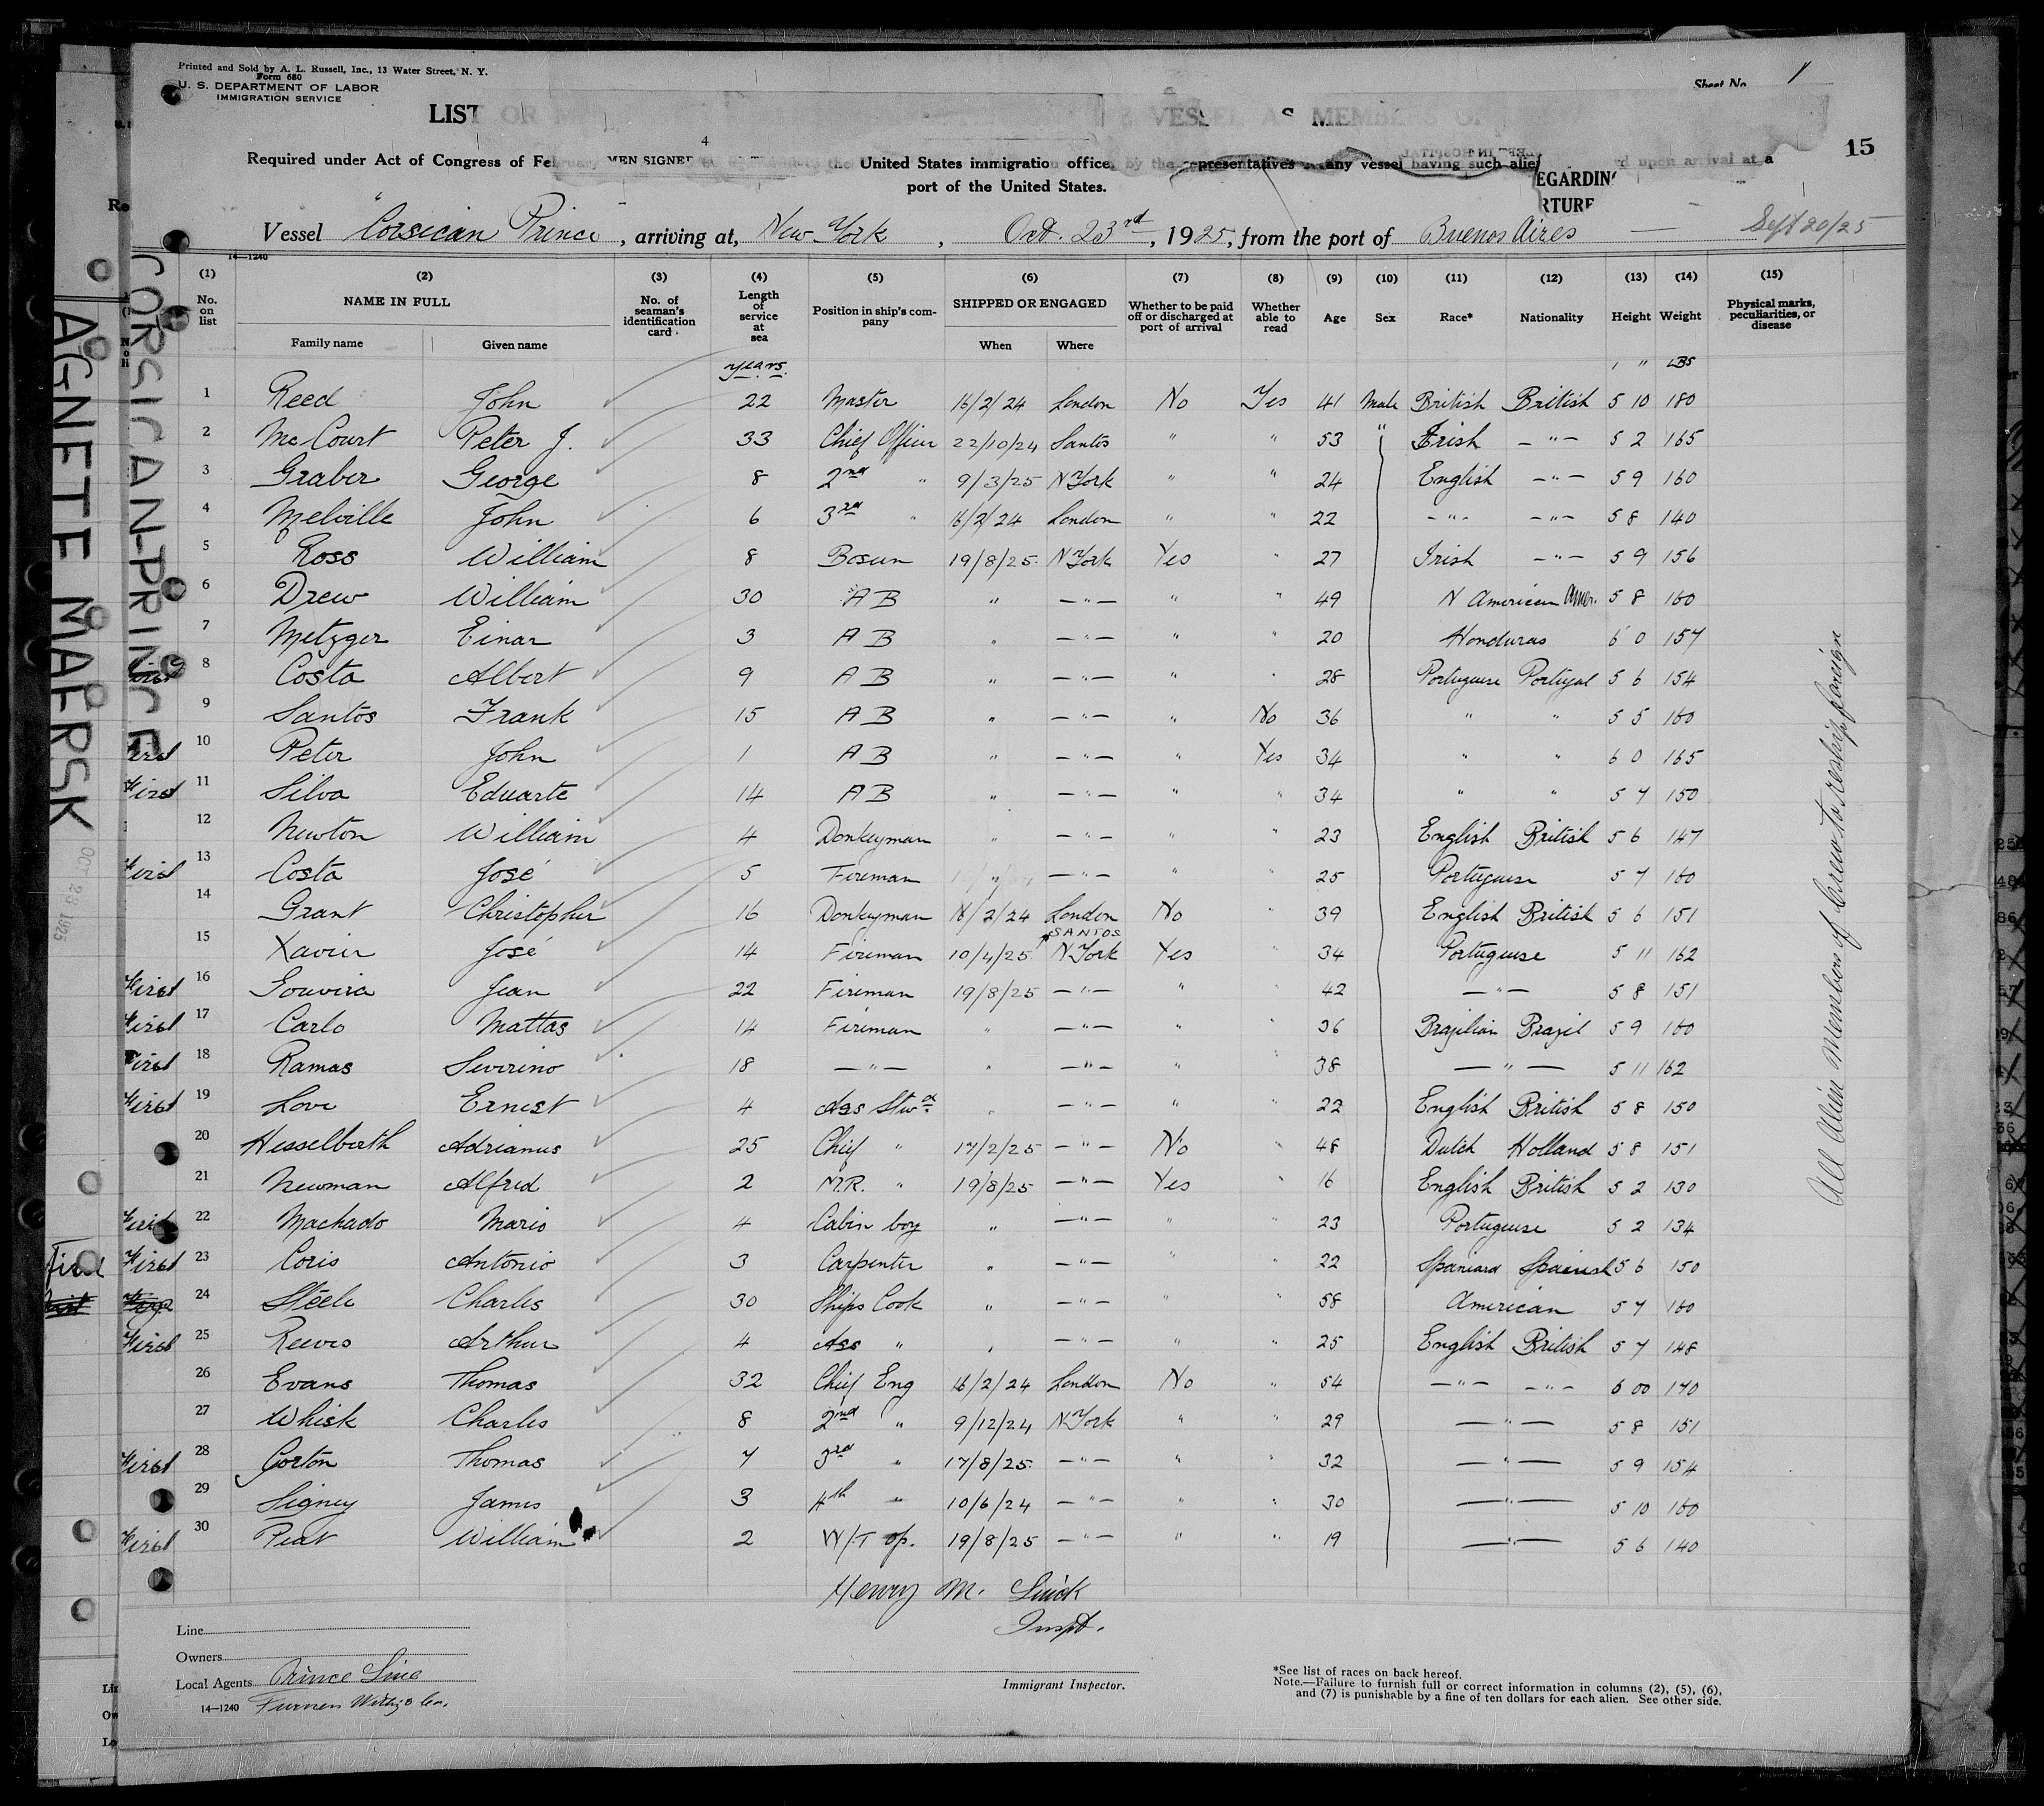 Printed and Sold by A. L. Russell, Inc., 13 Water Street, N. Y.
Form 680
U. S. DEPARTMENT OF LABOR
IMMIGRATION SERVICE
Sheet No. 1
LIST OR VESSEL AS MEMBERS OF
4
MEN SIGNED
15
Required under Act of Congress of February the United States immigration officer by the representatives any vessel having such alien upon arrival at a
port of the United States.
EGARDING
RTURE
Vessel Corsican Prince, arriving at, New York, Oct. 23rd, 1925, from the port of Buenos Aires — Sept 20/25
14—1240
(1) (2) (3) (4) (5) (6) (7) (8) (9) (10) (11) (12) (13) (14) (15)
No. on list NAME IN FULL Family name Given name No. of seaman's identification card Length of service at sea Position in ship's company SHIPPED OR ENGAGED When Where Whether to be paid off or discharged at port of arrival Whether able to read Age Sex Race* Nationality Height Weight Physical marks, peculiarities, or disease
years. ' " LBS
1 Reed John 22 Master 16/2/24 London No Yes 41 Male British British 5 10 180
2 McCourt Peter J. 33 Chief Officer 22/10/24 Santos " " 53 " Irish — " — 5 2 165
3 Graber George 8 2nd " 9/3/25 N York " " 24 English — " — 5 9 160
4 Melville John 6 3rd " 16/2/24 London " " 22 — " — — " — 5 8 140
5 Ross William 8 Bosun 19/8/25 N York Yes " 27 Irish — " — 5 9 156
6 Drew William 30 A B " — " — " " 49 N American Amer. 5 8 160
7 Metzger Einar 3 A B " — " — " " 20 Honduras 6 0 157
8 Costa Albert 9 A B " — " — " " 28 Portuguese Portugal 5 6 154
9 Santos Frank 15 A B " — " — " No 36 " " 5 5 160
First 10 Peter John 1 A B " — " — " Yes 34 " " 6 0 165
First 11 Silva Eduarte 14 A B " — " — " " 34 " " 5 7 150
12 Newton William 4 Donkeyman " — " — " " 23 English British 5 6 147
First 13 Costa José 5 Fireman " — " — " " 25 Portuguese 5 7 160
14 Grant Christopher 16 Donkeyman 16/2/24 London No " 39 English British 5 6 151
SANTOS
15 Xavier José 14 Fireman 10/4/25 N York Yes 34 Portuguese 5 11 162
First 16 Gouvira Jean 22 Fireman 19/8/25 — " — " " 42 — " — 5 8 151
First 17 Carlo Mattas 14 Fireman " — " — " " 36 Brazilian Brazil 5 9 160
First 18 Ramas Severino 18 — " — " — " — " " 38 — " — 5 11 162
First 19 Love Ernest 4 Ass Stwd " — " — " " 22 English British 5 8 150
20 Hesselberth Adrianus 25 Chief " 17/2/25 — " — No " 48 Dutch Holland 5 8 151
21 Newman Alfred 2 M.R. " 19/8/25 — " — Yes " 16 English British 5 2 130
First 22 Machado Mario 4 Cabin boy " — " — " " 23 Portuguese 5 2 134
First First 23 Coris Antonio 3 Carpenter " — " — " " 22 Spaniard Spanish 5 6 150
24 Steele Charles 30 Ships Cook " — " — " " 58 American 5 7 160
First 25 Reeves Arthur 4 Ass " " — " — " " 25 English British 5 7 148
26 Evans Thomas 32 Chief Eng 16/2/24 London No " 54 — " — — " — 6 00 170
27 Whisk Charles 8 2nd " 9/12/24 N York " " 29 — " — 5 8 151
First 28 Corton Thomas 7 3rd " 17/8/25 — " — " " 32 — " — 5 9 154
29 Signey James 3 4th " 10/6/24 — " — " " 30 — " — 5 10 160
First 30 Peat William 2 W/T op. 19/8/25 — " — " " 19 — " — 5 6 140
All Alien Members of Crew to reship foreign
CORSICAN-PRINCE
AGNETE MAERSK
OCT 23 1925
Henry M.
Inspt.
Line
Owners
Local Agents Prince Line
14—1240 Furness Withy & Co.
Immigrant Inspector.
*See list of races on back hereof.
Note.—Failure to furnish full or correct information in columns (2), (5), (6),
and (7) is punishable by a fine of ten dollars for each alien. See other side.